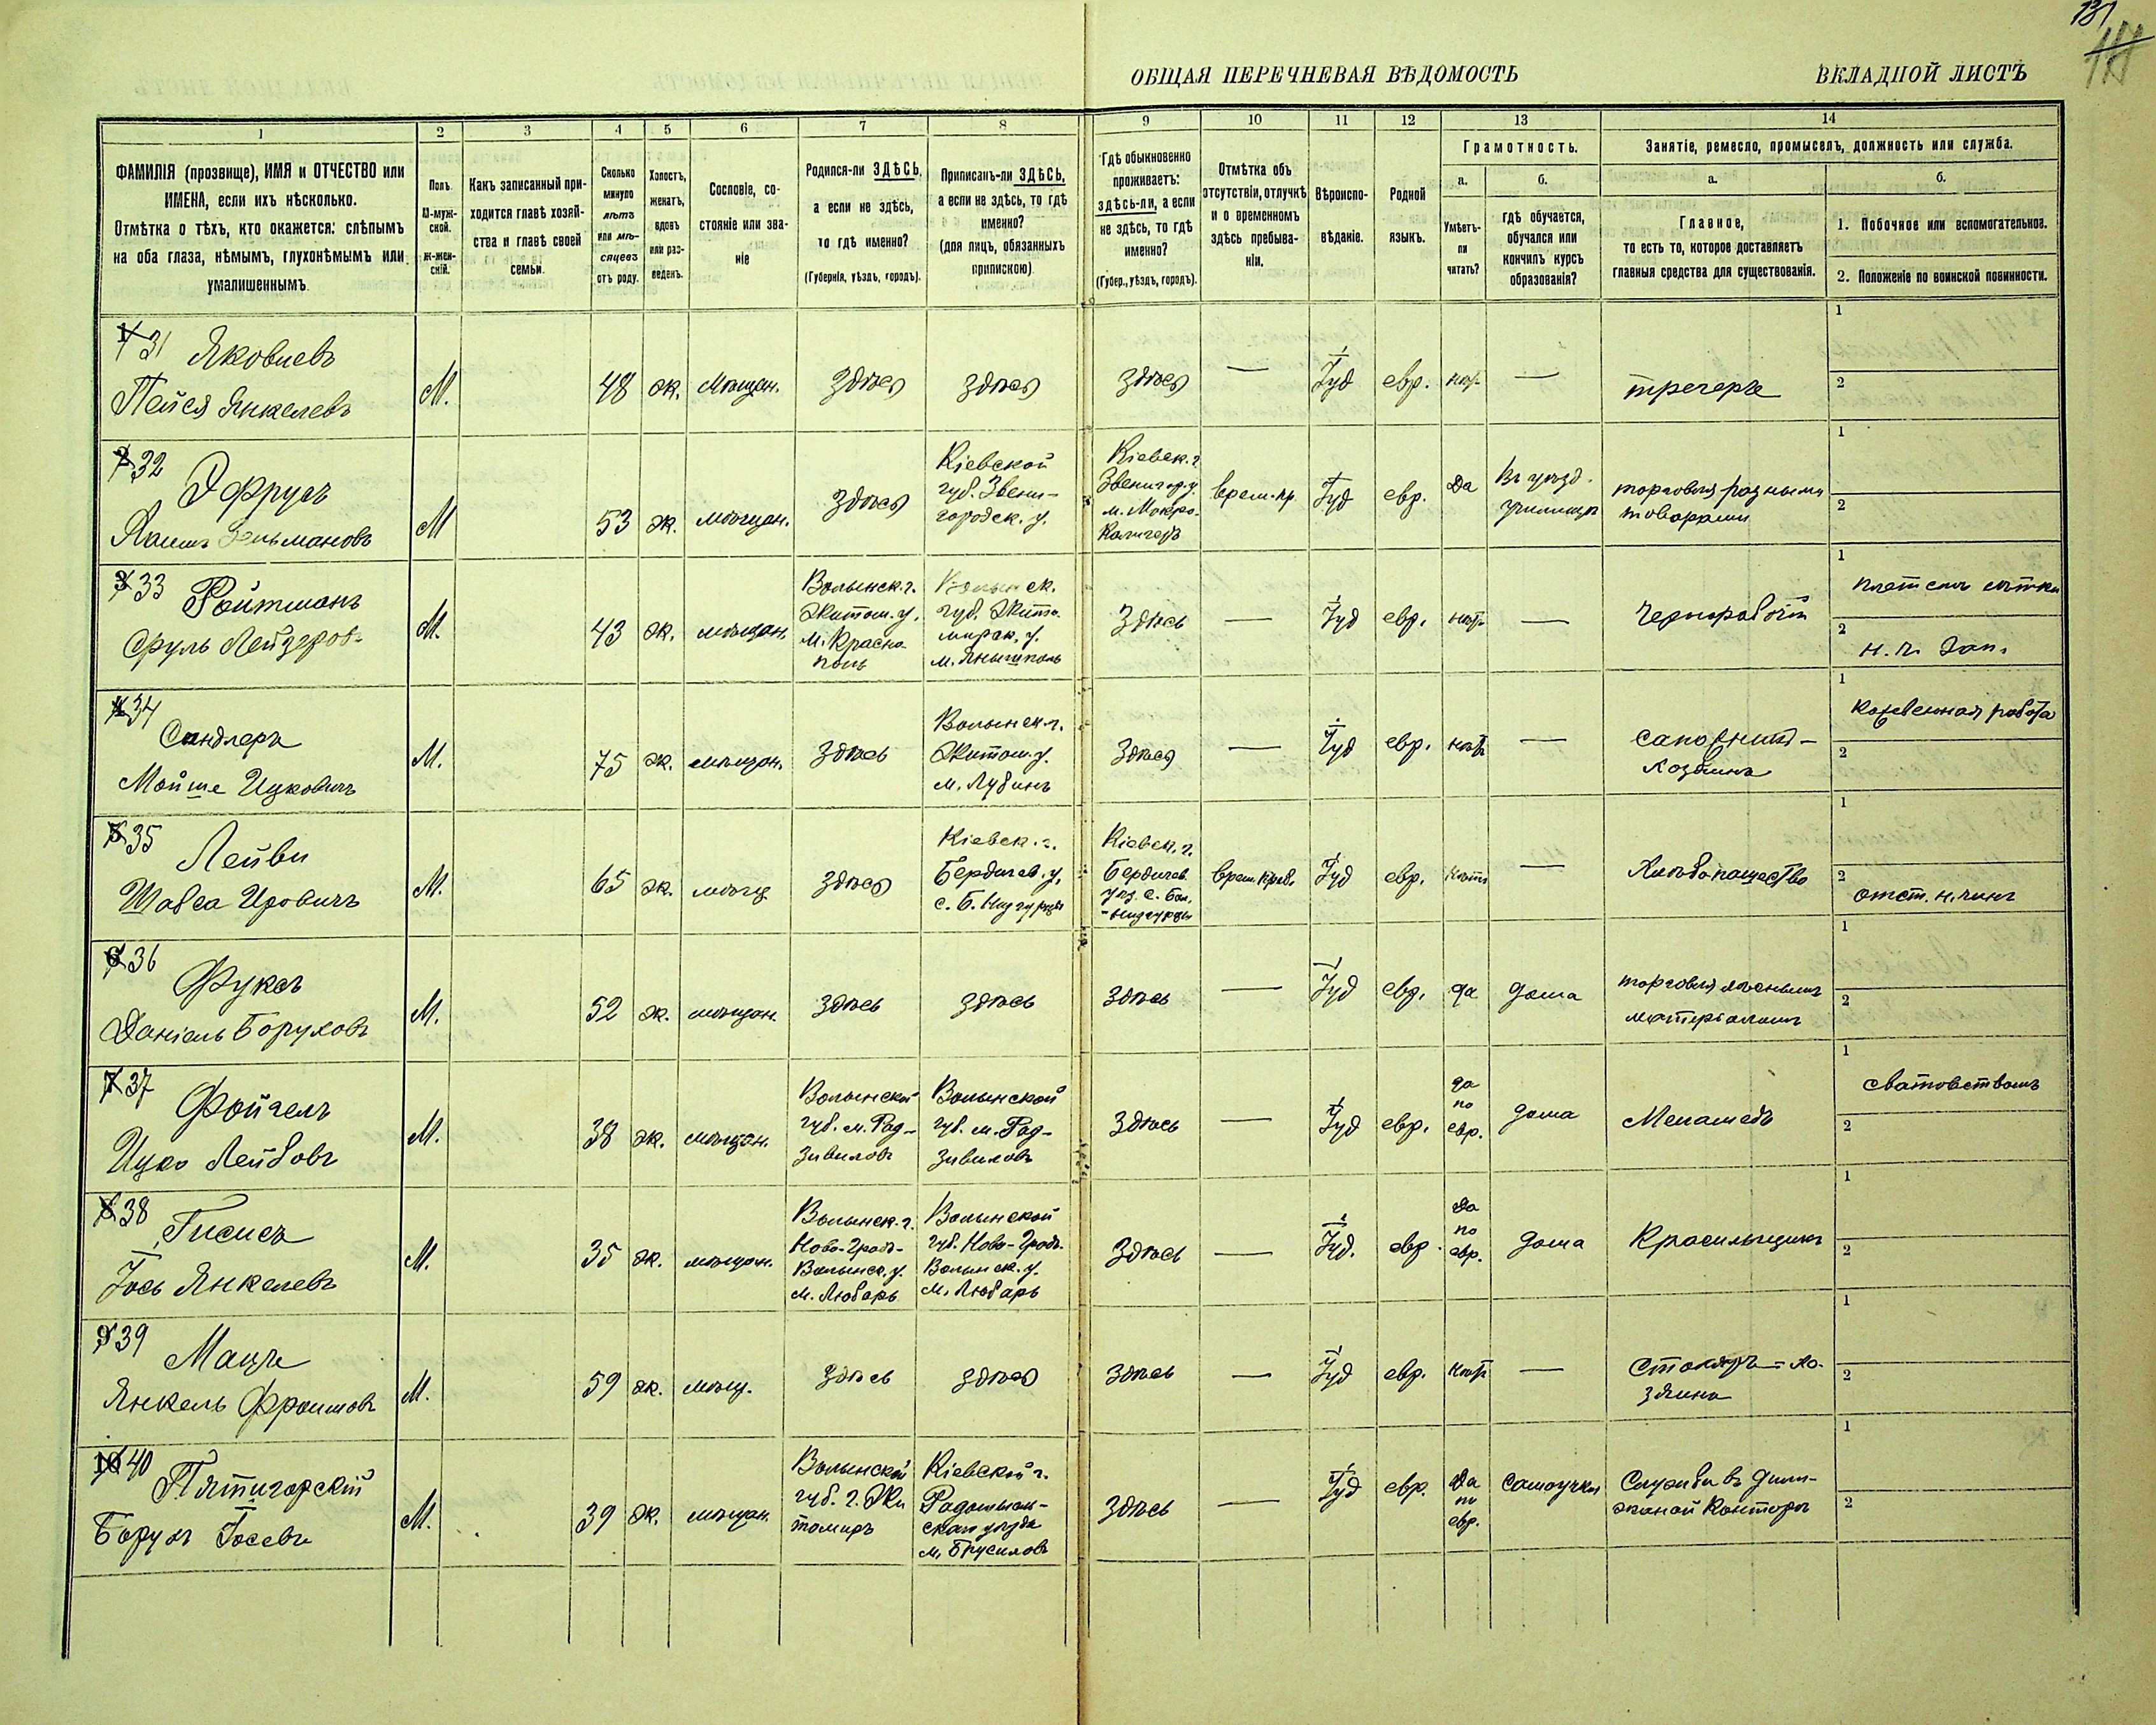 131
ОБЩАЯ ПЕРЕЧНЕВАЯ ВѢДОМОСТЬ
ВКЛАДНОЙ ЛИСТЪ
1 2 3 4 5 6 7 8 9 10 11 12 13 14
ФАМИЛІЯ (прозвище), ИМЯ и ОТЧЕСТВО или
ИМЕНА, если ихъ нѣсколько.
Отмѣтка о тѣхъ, кто окажется: слѣпымъ
на оба глаза, нѣмымъ, глухонѣмымъ или
умалишеннымъ.
Полъ.
М-муж-
ской.
ж-жен-
скій.
Какъ записанный при-
ходится главѣ хозяй-
ства и главѣ своей
семьи.
Сколько
минуло
лѣтъ
или мѣ-
сяцевъ
отъ роду.
Холостъ,
женатъ,
вдовъ
или раз-
веденъ.
Сословіе, со-
стояніе или зва-
ніе
Родился-ли ЗДѢСЬ,
а если не здѣсь,
то гдѣ именно?
(Губернія, уѣздъ, городъ).
Приписанъ-ли ЗДѢСЬ,
а если не здѣсь, то гдѣ
именно?
(для лицъ, обязанныхъ
припискою).
Гдѣ обыкновенно
проживаетъ:
здѣсь-ли, а если
не здѣсь, то гдѣ
именно?
(Губер., уѣздъ, городъ).
Отмѣтка объ
отсутствіи, отлучкѣ
и о временномъ
здѣсь пребыва-
ніи.
Вѣроиспо-
вѣданіе.
Родной
языкъ.
Грамотность.
а.
Умѣетъ-
ли
читать?
б.
гдѣ обучается,
обучался или
кончилъ курсъ
образованія?
Занятіе, ремесло, промыселъ, должность или служба.
а.
Главное,
то есть то, которое доставляетъ
главныя средства для существованія.
б.
1. Побочное или вспомогательное.
2. Положеніе по воинской повинности.
1 31 Яковлевъ
Пейся Янкелевъ
М.
48
ж.
Мѣщан.
здѣсь
здѣсь
здѣсь
—
Іуд
евр.
нѣт
—
1
2
2 32
Эфрусъ
Хаимъ Зельмановъ
М
53
ж.
мѣщан.
здѣсь
Кіевской
губ. Звени-
городск. у.
Кіевск. г.
Звенигор. у.
м. Мокро-
врем. пр.
Іуд
евр.
Да
Въ уѣзд.
училищѣ
торговля разными
товарами
1
2
3 33 Ройтманъ
Сруль Лейзеров.
М.
43
ж.
мѣщан.
Волынск. г.
Житом. у.
м. Красно-
поль
Волынск.
губ. Жито-
мирск. у.
м. Янышполь
Здѣсь
—
Іуд
евр.
нѣт
—
Чернорабочій
1
2
4 34
Сандлеръ
Мойше Ицковичъ
М.
75
ж.
мѣщан.
здѣсь
Волынск. г.
Житом. у.
м. Лубинъ
Здѣсь
—
Іуд
евр.
нѣт
—
сапожникъ-
хозяинъ
1
2
5 35
Лейви
Шабса Ицковичъ
М.
65
ж.
мѣщ.
здѣсь
Кіевск. г.
Бердичев. у.
с. Б. Низгурцы
Кіевск. г.
Бердичев.
уѣз. с. Бол.
-Низгурцы
врем. преб.
Іуд
евр.
нѣтъ
—
Хлѣбопашество
1
2
отст. н. чинъ
6 36
Фуксъ
Даніель Боруховъ
М.
52
ж.
мѣщан.
здѣсь
здѣсь
здѣсь
—
Іуд
евр.
да
дома
торговля лѣснымъ
матеріаломъ
1
2
7 37
Фойгелъ
Ицко Лейбовъ
М.
38
ж.
мѣщан.
Волынской
губ. м. Рад-
зивиловъ
Волынской
губ. м. Рад-
зивиловъ
здѣсь
—
Іуд
евр.
да
по
евр.
дома
Меламедъ
1
сватовствомъ
2
8 38
Гисисъ
Іось Янкелевъ
М.
35
ж.
мѣщан.
Волынск. г.
Ново-Градъ-
Волынск. у.
м. Любарь
Волынской
губ. Ново-Градъ-
Волынск. у.
м. Любарь
Здѣсь
—
Іуд.
евр.
да
по
евр.
дома
Красильщикъ
1
2
9 39
Мацъ
Янкель Фроимовъ
М.
59
ж.
мѣщ.
здѣсь
здѣсь
здѣсь
—
Іуд
евр.
нѣт
—
Столяръ-хо-
зяинъ
1
2
10 40
Пятигорскій
Борухъ Іосевъ
М.
39
ж.
мѣщан.
Волынской
губ. г. Жи
томиръ
Кіевской г.
Радомысль-
скаго уѣзда
м. Брусиловъ
здѣсь
—
Іуд
евр.
Да
по
евр.
самоучка
Служба въ дили-
жанной конторѣ
1
2